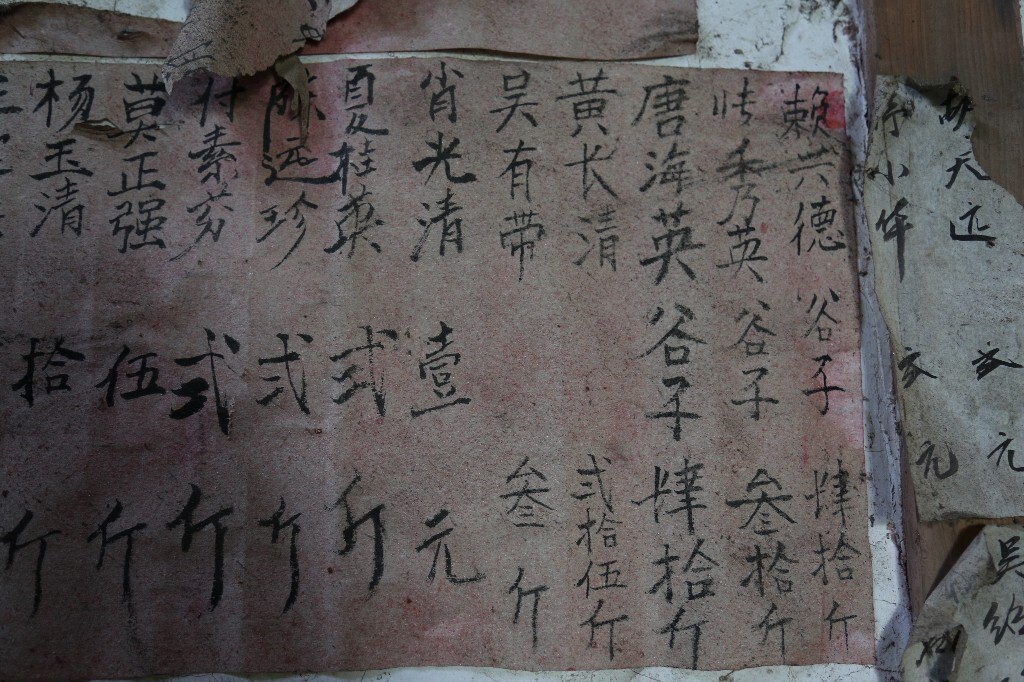 天
元
小华
元
吴
赖兴德 谷子 肆拾斤
秀英 谷子 叁拾斤
唐海英 谷子 肆拾斤
黄长清 弍拾伍斤
吴有带 叁斤
肖光清 壹元
夏桂英 弍斤
陈远珍 弍斤
付素芬 弍斤
莫正强 伍斤
杨玉清 拾斤